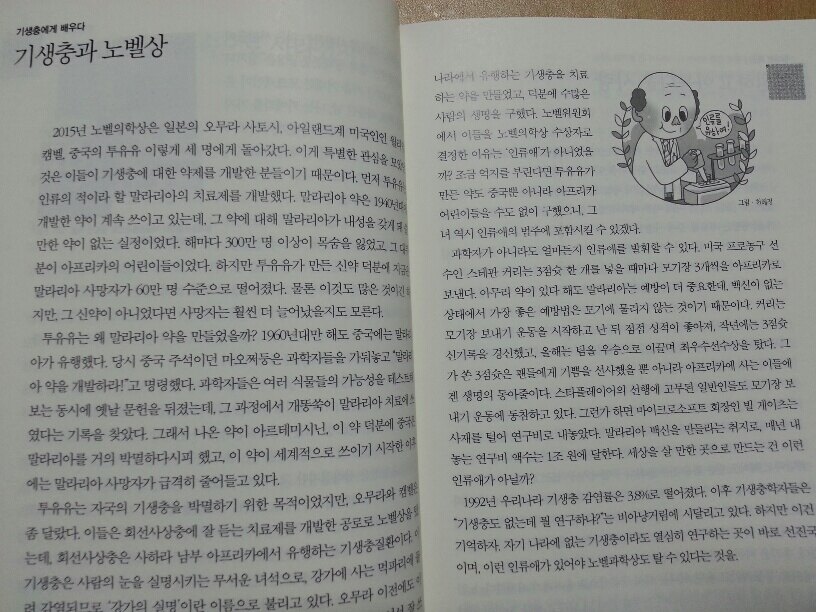 기생충에게 배우다
기생충과 노벨상
2015년 노벨의학상은 일본의 오무라 사토시, 아일랜드계 미국인인
캠벨, 중국의 투유유 이렇게 세 명에게 돌아갔다. 이게 특별한 관심을
것은 이들이 기생충에 대한 약제를 개발한 분들이기 때문이다. 먼저 투유유
인류의 적이라 할 말라리아의 치료제를 개발했다. 말라리아 약은 1960년대
개발한 약이 계속 쓰이고 있는데, 그 약에 대해 말라리아가 내성을 갖게
만한 약이 없는 실정이었다. 해마다 300만 명 이상이 목숨을 잃었고, 그
분이 아프리카의 어린이들이었다. 하지만 투유유가 만든 신약 덕분에
말라리아 사망자가 60만 명 수준으로 떨어졌다. 물론 이것도 많은 것이긴
지만, 그 신약이 아니었다면 사망자는 훨씬 더 늘어났을지도 모른다.
투유유는 왜 말라리아 약을 만들었을까? 1960년대만 해도 중국에는
아가 유행했다. 당시 중국 주석이던 마오쩌둥은 과학자들을 가둬놓고 “말라리
아 약을 개발하라!”고 명령했다. 과학자들은 여러 식물들의 가능성을
보는 동시에 옛날 문헌을 뒤졌는데, 그 과정에서 개똥쑥이 말라리아 치료에
였다는 기록을 찾았다. 그래서 나온 약이 아르테미시닌, 이 약 덕분에
말라리아를 거의 박멸하다시피 했고, 이 약이 세계적으로 쓰이기 시작한
에는 말라리아 사망자가 급격히 줄어들고 있다.
투유유는 자국의 기생충을 박멸하기 위한 목적이었지만, 오무라와 캠벨은
좀 달랐다. 이들은 회선사상충에 잘 듣는 치료제를 개발한 공로로 노벨상을
는데, 회선사상충은 사하라 남부 아프리카에서 유행하는 기생충질환이다.
기생충은 사람의 눈을 실명시키는 무서운 녀석으로, 강가에 사는 먹파리에
려 감염되므로 ‘강가의 실명’이란 이름으로 불리고 있다. 오무라 이전에도
나라에서 유행하는 기생충을 치료
하는 약을 만들었고, 덕분에 수많은
사람의 생명을 구했다. 노벨위원회
에서 이들을 노벨의학상 수상자로
결정한 이유는 ‘인류애’가 아니었을
까? 조금 억지를 부린다면 투유유가
만든 약도 중국뿐 아니라 아프리카
어린이들을 수도 없이 구했으니, 그
녀 역시 인류애의 범주에 포함시킬 수 있겠다.
인류를
위하여!
과학자가 아니라도 얼마든지 인류애를 발휘할 수 있다. 미국 프로농구 선
수인 스테판 커리는 3점슛 한 개를 넣을 때마다 모기장 3개씩을 아프리카로
보낸다. 아무리 약이 있다 해도 말라리아는 예방이 더 중요한데, 백신이 없는
상태에서 가장 좋은 예방법은 모기에 물리지 않는 것이기 때문이다. 커리는
모기장 보내기 운동을 시작하고 난 뒤 점점 성적이 좋아져, 작년에는 3점슛
신기록을 경신했고, 올해는 팀을 우승으로 이끌며 최우수선수상을 탔다. 그
가 쏜 3점슛은 팬들에게 기쁨을 선사했을 뿐 아니라 아프리카에 사는 이들에
겐 생명의 동아줄이다. 스타플레이어의 선행에 고무된 일반인들도 모기장 보
내기 운동에 동참하고 있다. 그런가 하면 마이크로소프트 회장인 빌 게이츠는
사재를 털어 연구비로 내놓았다. 말라리아 백신을 만들라는 취지로, 매년 내
놓는 연구비 액수는 1조 원에 달한다. 세상을 살 만한 곳으로 만드는 건 이런
인류애가 아닐까?
1992년 우리나라 기생충 감염률은 3.8%로 떨어졌다. 이후 기생충학자들은
“기생충도 없는데 뭘 연구하냐?”는 비아냥거림에 시달리고 있다. 하지만 이건
기억하자. 자기 나라에 없는 기생충이라도 열심히 연구하는 곳이 바로 선진국
이며, 이런 인류애가 있어야 노벨과학상도 탈 수 있다는 것을.